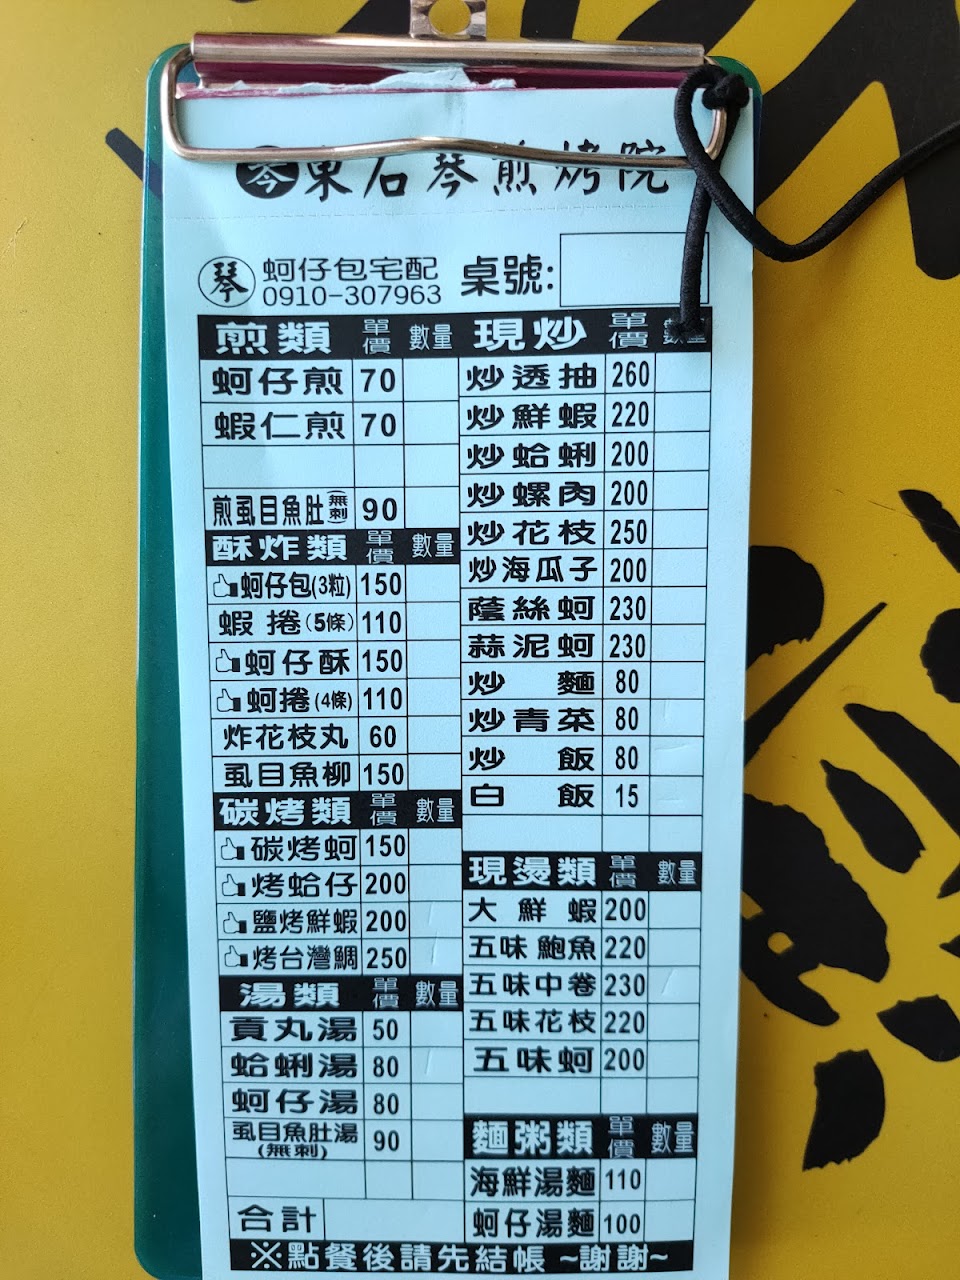 琴東石琴煎烤院
琴 蚵仔包宅配
0910-307963
桌號:
煎類 單價 數量
蚵仔煎 70
蝦仁煎 70
煎虱目魚肚(無刺) 90
酥炸類 單價 數量
蚵仔包(3粒) 150
蝦捲(5條) 110
蚵仔酥 150
蚵捲(4條) 110
炸花枝丸 60
虱目魚柳 150
碳烤類 單價 數量
碳烤蚵 150
烤蛤仔 200
鹽烤鮮蝦 200
烤台灣鯛 250
湯類 單價 數量
貢丸湯 50
蛤蜊湯 80
蚵仔湯 80
虱目魚肚湯(無刺) 90
合計
現炒 單價 數量
炒透抽 260
炒鮮蝦 220
炒蛤蜊 200
炒螺肉 200
炒花枝 250
炒海瓜子 200
蔭絲蚵 230
蒜泥蚵 230
炒麵 80
炒青菜 80
炒飯 80
白飯 15
現燙類 單價 數量
大鮮蝦 200
五味鮑魚 220
五味中卷 230
五味花枝 220
五味蚵 200
麵粥類 單價 數量
海鮮湯麵 110
蚵仔湯麵 100
※點餐後請先結帳 ~謝謝~